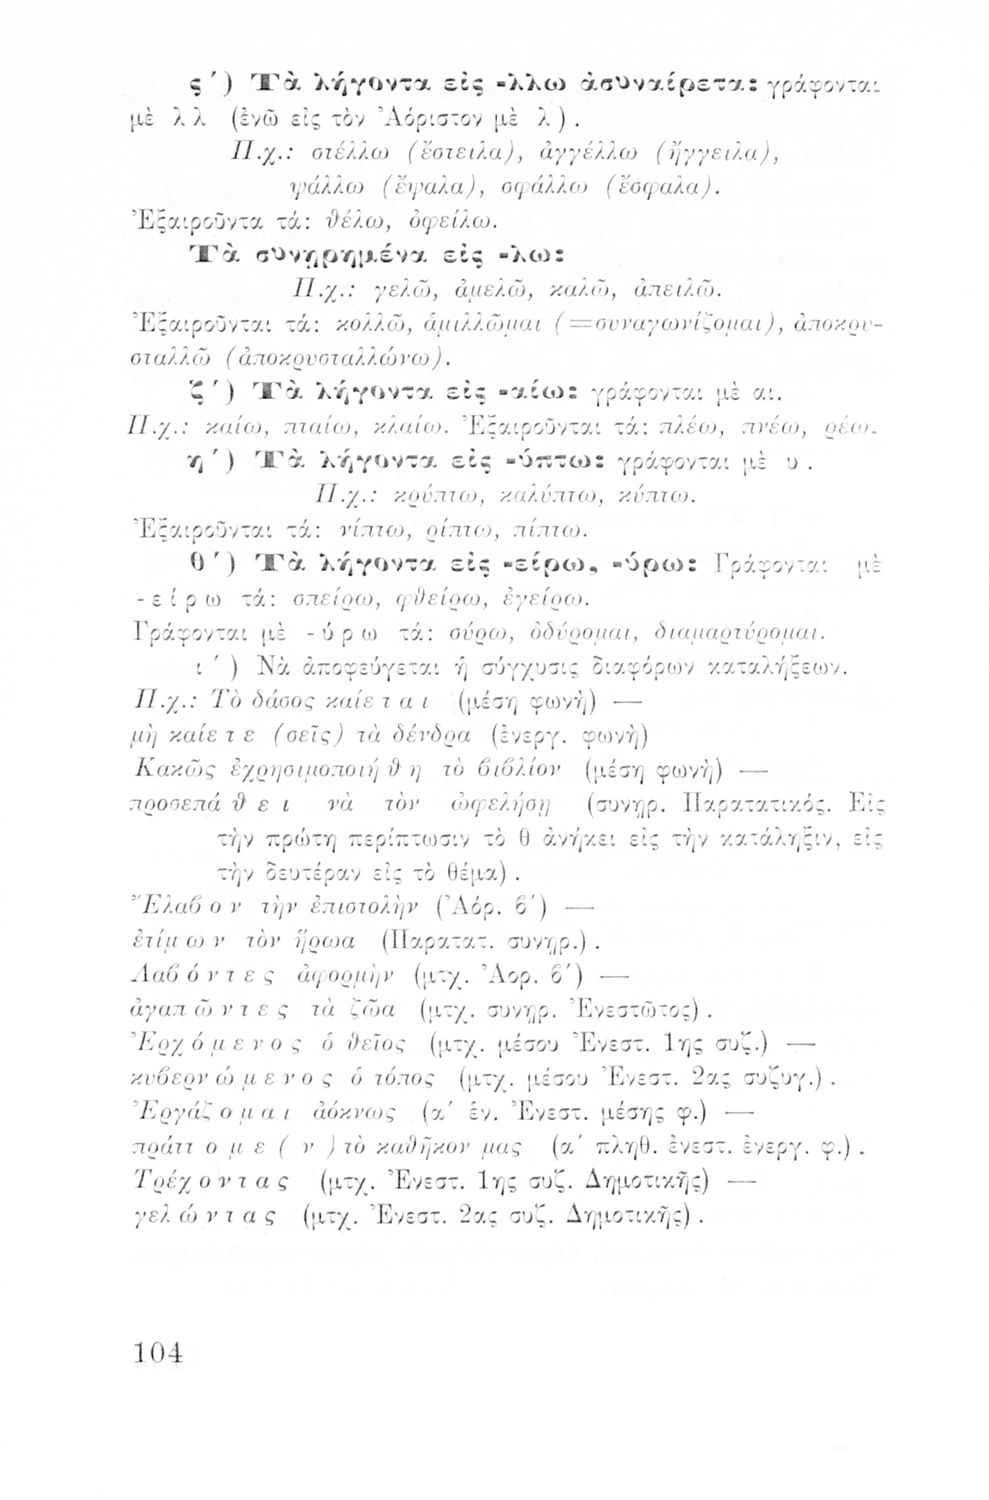 ς΄) Τὰ λήγοντα εἰς -λλω ἀσυναίρετα: γράφονται
μὲ λλ (ἐνῶ εἰς τὸν Ἀόριστον μὲ λ).
Π.χ.: στέλλω (ἔστειλα), ἀγγέλλω (ἤγγειλα),
ψάλλω (ἔψαλα), σφάλλω (ἔσφαλα).
Ἐξαιροῦντα τά: θέλω, ὀφείλω.
Τὰ συνῃρημένα εἰς -λω:
Π.χ.: γελῶ, ἀμελῶ, καλῶ, ἀπειλῶ.
Ἐξαιροῦνται τά: κολλῶ, ἁμιλλῶμαι (=συναγωνίζομαι), ἀποκρυ-
σταλλῶ (ἀποκρυσταλλώνω).
ζ΄) Τὰ λήγοντα εἰς -αίω: γράφονται μὲ αι.
Π.χ.: καίω, πταίω, κλαίω. Ἐξαιροῦνται τά: πλέω, πνέω, ρέω.
η΄) Τὰ λήγοντα εἰς -ύπτω: γράφονται μὲ υ.
Π.χ.: κρύπτω, καλύπτω, κύπτω.
Ἐξαιροῦνται τά: νίπτω, ρίπτω, πίπτω.
θ΄) Τὰ λήγοντα εἰς -είρω, -ύρω: Γράφονται μὲ
-είρω τά: σπείρω, φθείρω, ἐγείρω.
Γράφονται μὲ -ύρω τά: σύρω, ὀδύρομαι, διαμαρτύρομαι.
ι΄) Νὰ ἀποφεύγεται ἡ σύγχυσις διαφόρων καταλήξεων.
Π.χ.: Τὸ δάσος καίεται (μέση φωνὴ) —
μὴ καίετε (σεῖς) τὰ δένδρα (ἐνεργ. φωνὴ)
Κακῶς ἐχρησιμοποιήθη τὸ βιβλίον (μέση φωνὴ) —
προσεπάθει νὰ τὸν ὠφελήσῃ (συνῃρ. Παρατατικός. Εἰς
τὴν πρώτη περίπτωσιν τὸ θ ἀνήκει εἰς τὴν κατάληξιν, εἰς
τὴν δευτέραν εἰς τὸ θέμα).
Ἔλαβον τὴν ἐπιστολὴν (Ἀόρ. β΄) —
ἐτίμων τὸν ἥρωα (Παρατατ. συνῃρ.).
Λαβόντες ἀφορμὴν (μτχ. Ἀορ. β΄) —
ἀγαπῶντες τὰ ζῶα (μτχ. συνῃρ. Ἐνεστῶτος).
Ἐρχόμενος ὁ θεῖος (μτχ. μέσου Ἐνεστ. 1ης συζ.) —
κυβερνώμενος ὁ τόπος (μτχ. μέσου Ἐνεστ. 2ας συζυγ.).
Ἐργάζομαι ἀόκνως (α΄ ἑν. Ἐνεστ. μέσης φ.) —
πράττομε(ν) τὸ καθῆκον μας (α΄ πληθ. ἐνεστ. ἐνεργ. φ.).
Τρέχοντας (μτχ. Ἐνεστ. 1ης συζ. Δημοτικῆς) —
γελώντας (μτχ. Ἐνεστ. 2ας συζ. Δημοτικῆς).
104